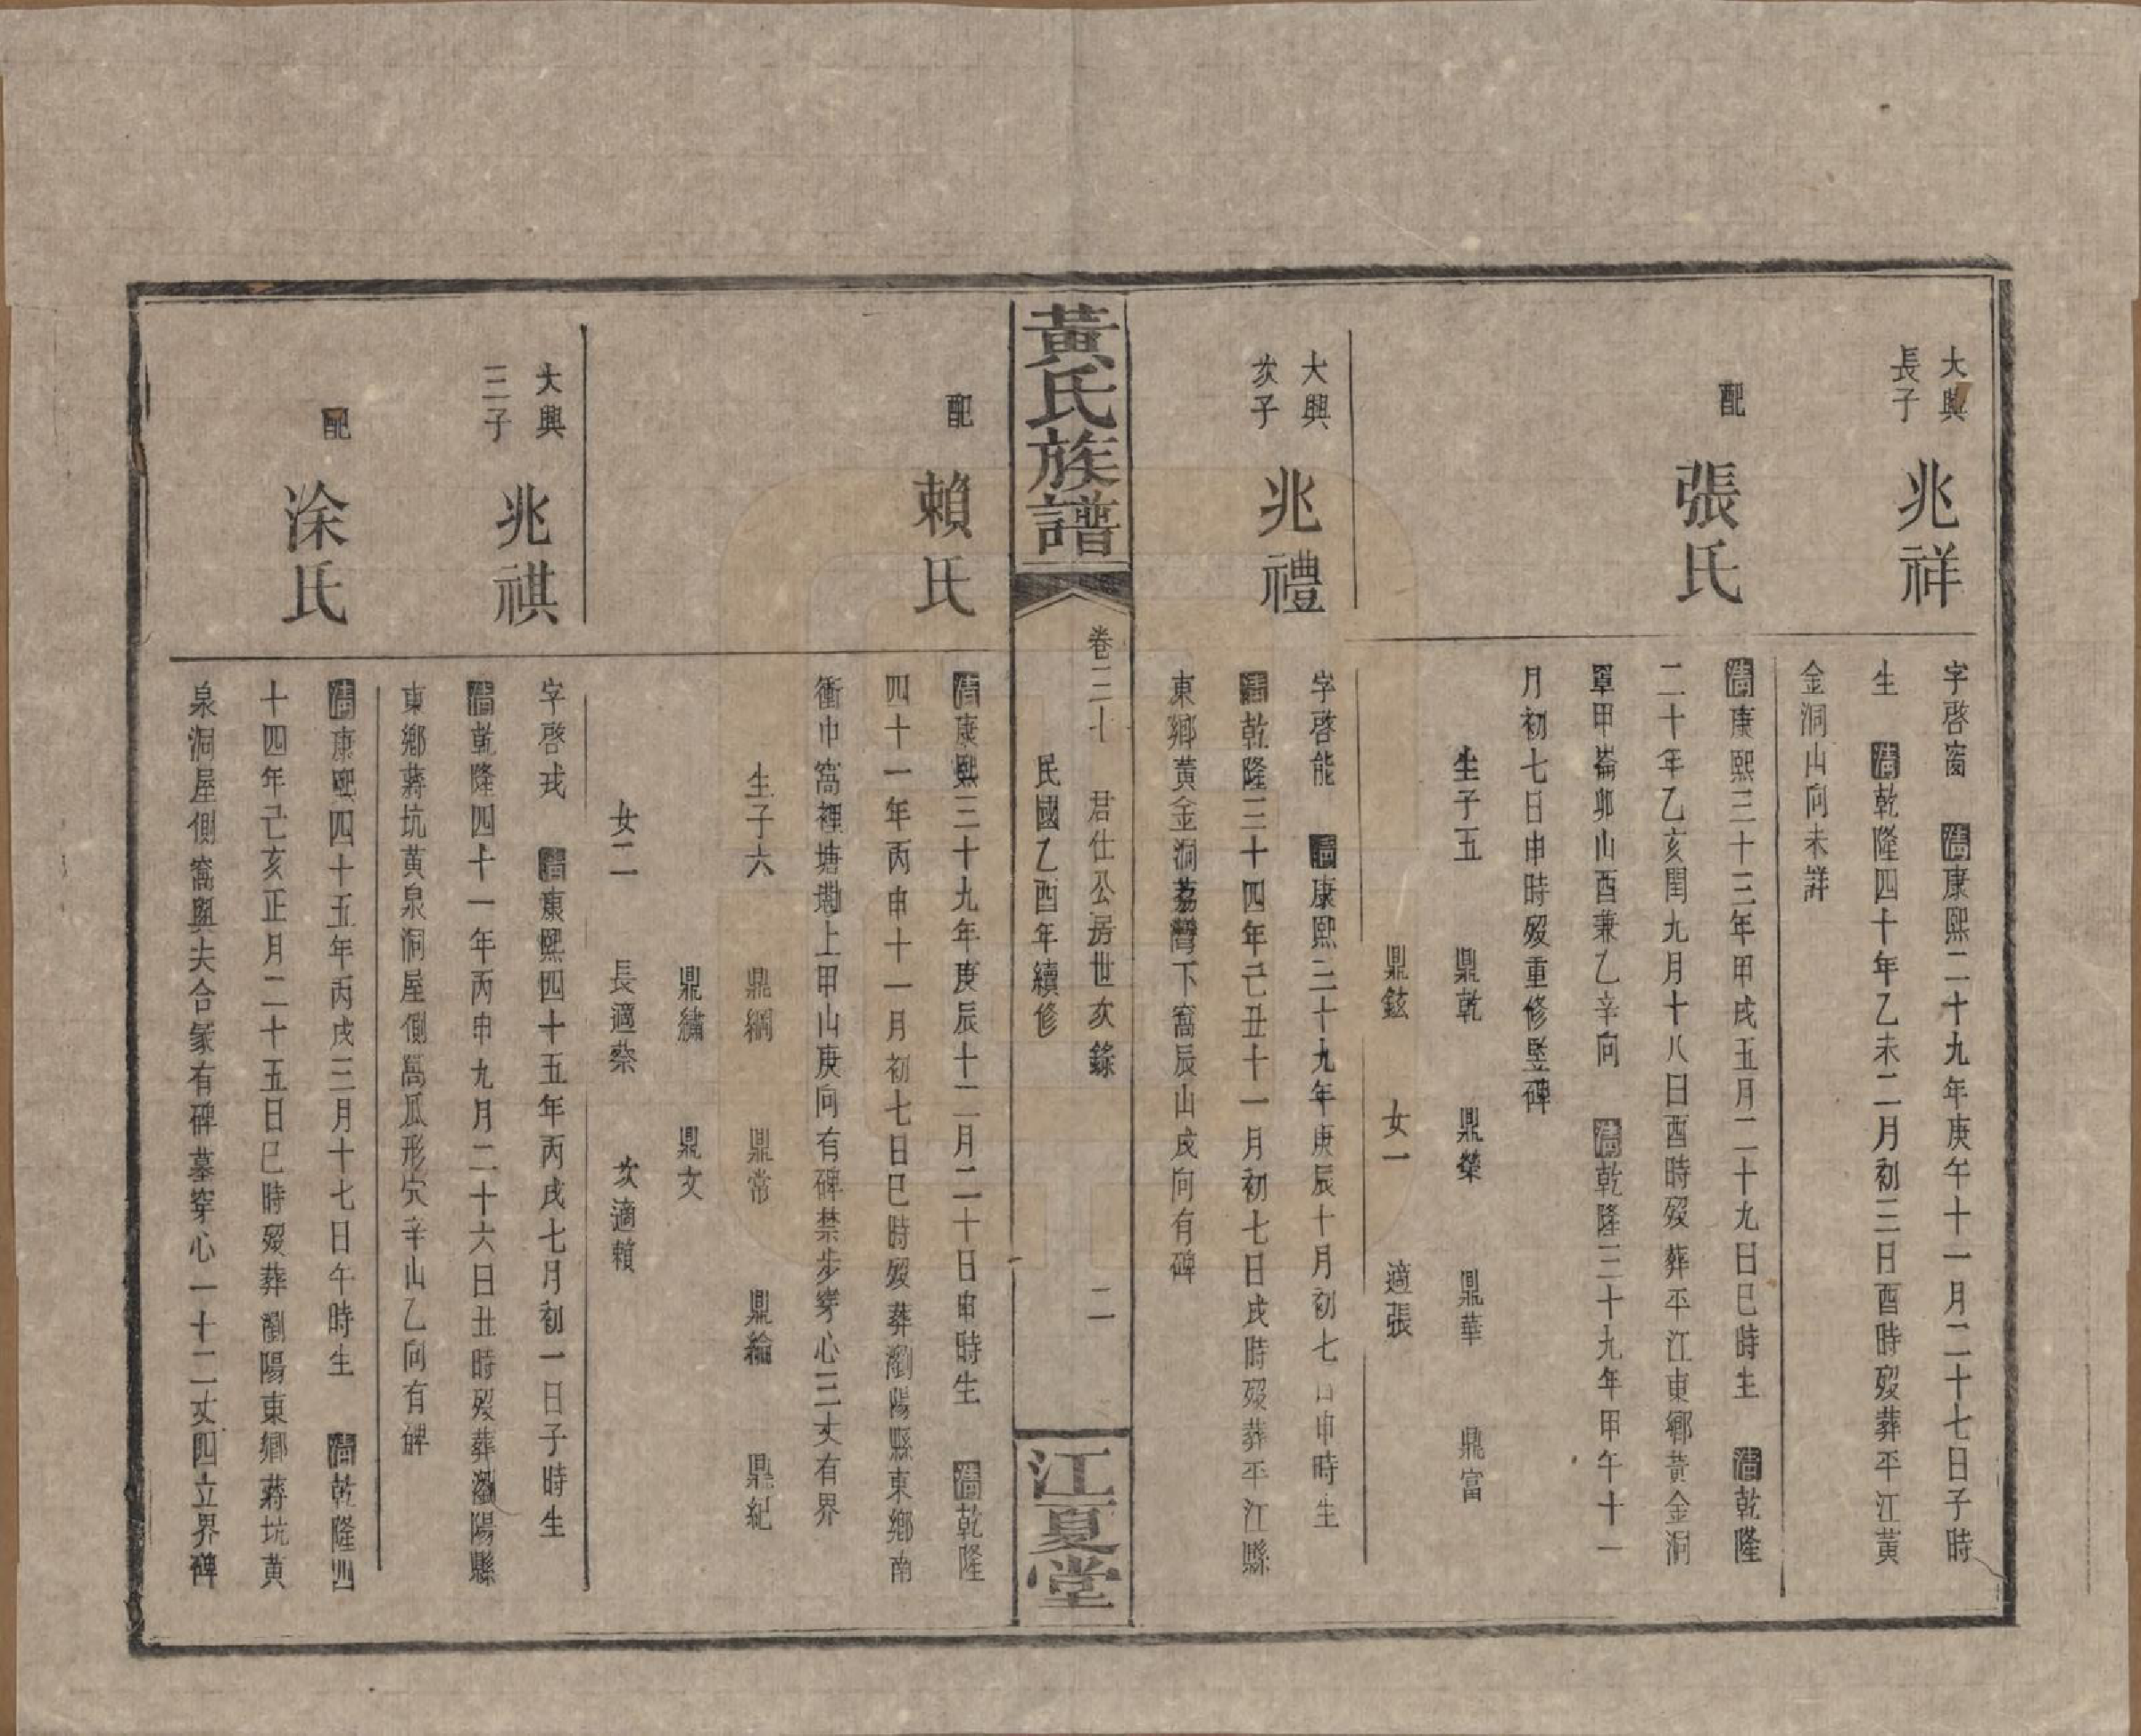 大興
長子
兆祥
字啓窗　清康熙二十九年庚午十一月二十七日子時
生　清乾隆四十年乙未二月初三日酉時歿葬平江黃
金洞山向未詳
配
張氏
清康熙三十三年甲戌五月二十九日巳時生　清乾隆
二十年乙亥閏九月十八日酉時歿葬平江東鄉黃金洞
單甲崙卯山酉兼乙辛向　清乾隆三十九年甲午十一
月初七日申時歿重修竪碑
生子五　鼎乾　鼎榮　鼎華　鼎富
鼎鉉　女一　適張
大興
次子
兆禮
字啓能　清康熙三十九年庚辰十月初七日申時生
清乾隆三十四年己丑十一月初七日戌時歿葬平江縣
東鄉黃金洞荔灣下窩辰山戌向有碑
黃氏族譜
卷三十　君仕公房世次錄　二
民國乙酉年續修
江夏堂
配
賴氏
清康熙三十九年庚辰十二月二十日申時生　清乾隆
四十一年丙申十一月初七日巳時歿葬瀏陽縣東鄉南
衝巾窩裡塘墈上甲山庚向有碑禁步穿心三丈有界
生子六　鼎綱　鼎常　鼎綸　鼎紀
鼎繡　鼎文
女二　長適蔡　次適賴
大興
三子
兆祺
字啓戎　清康熙四十五年丙戌七月初一日子時生
清乾隆四十一年丙申九月二十六日丑時歿葬瀏陽縣
東鄉蔣坑黃泉洞屋側萵瓜形穴辛山乙向有碑
配
涂氏
清康熙四十五年丙戌三月十七日午時生　清乾隆四
十四年己亥正月二十五日巳時歿葬瀏陽東鄉蔣坑黃
泉洞屋側窩與夫合冢有碑墓穿心一十二丈四立界碑